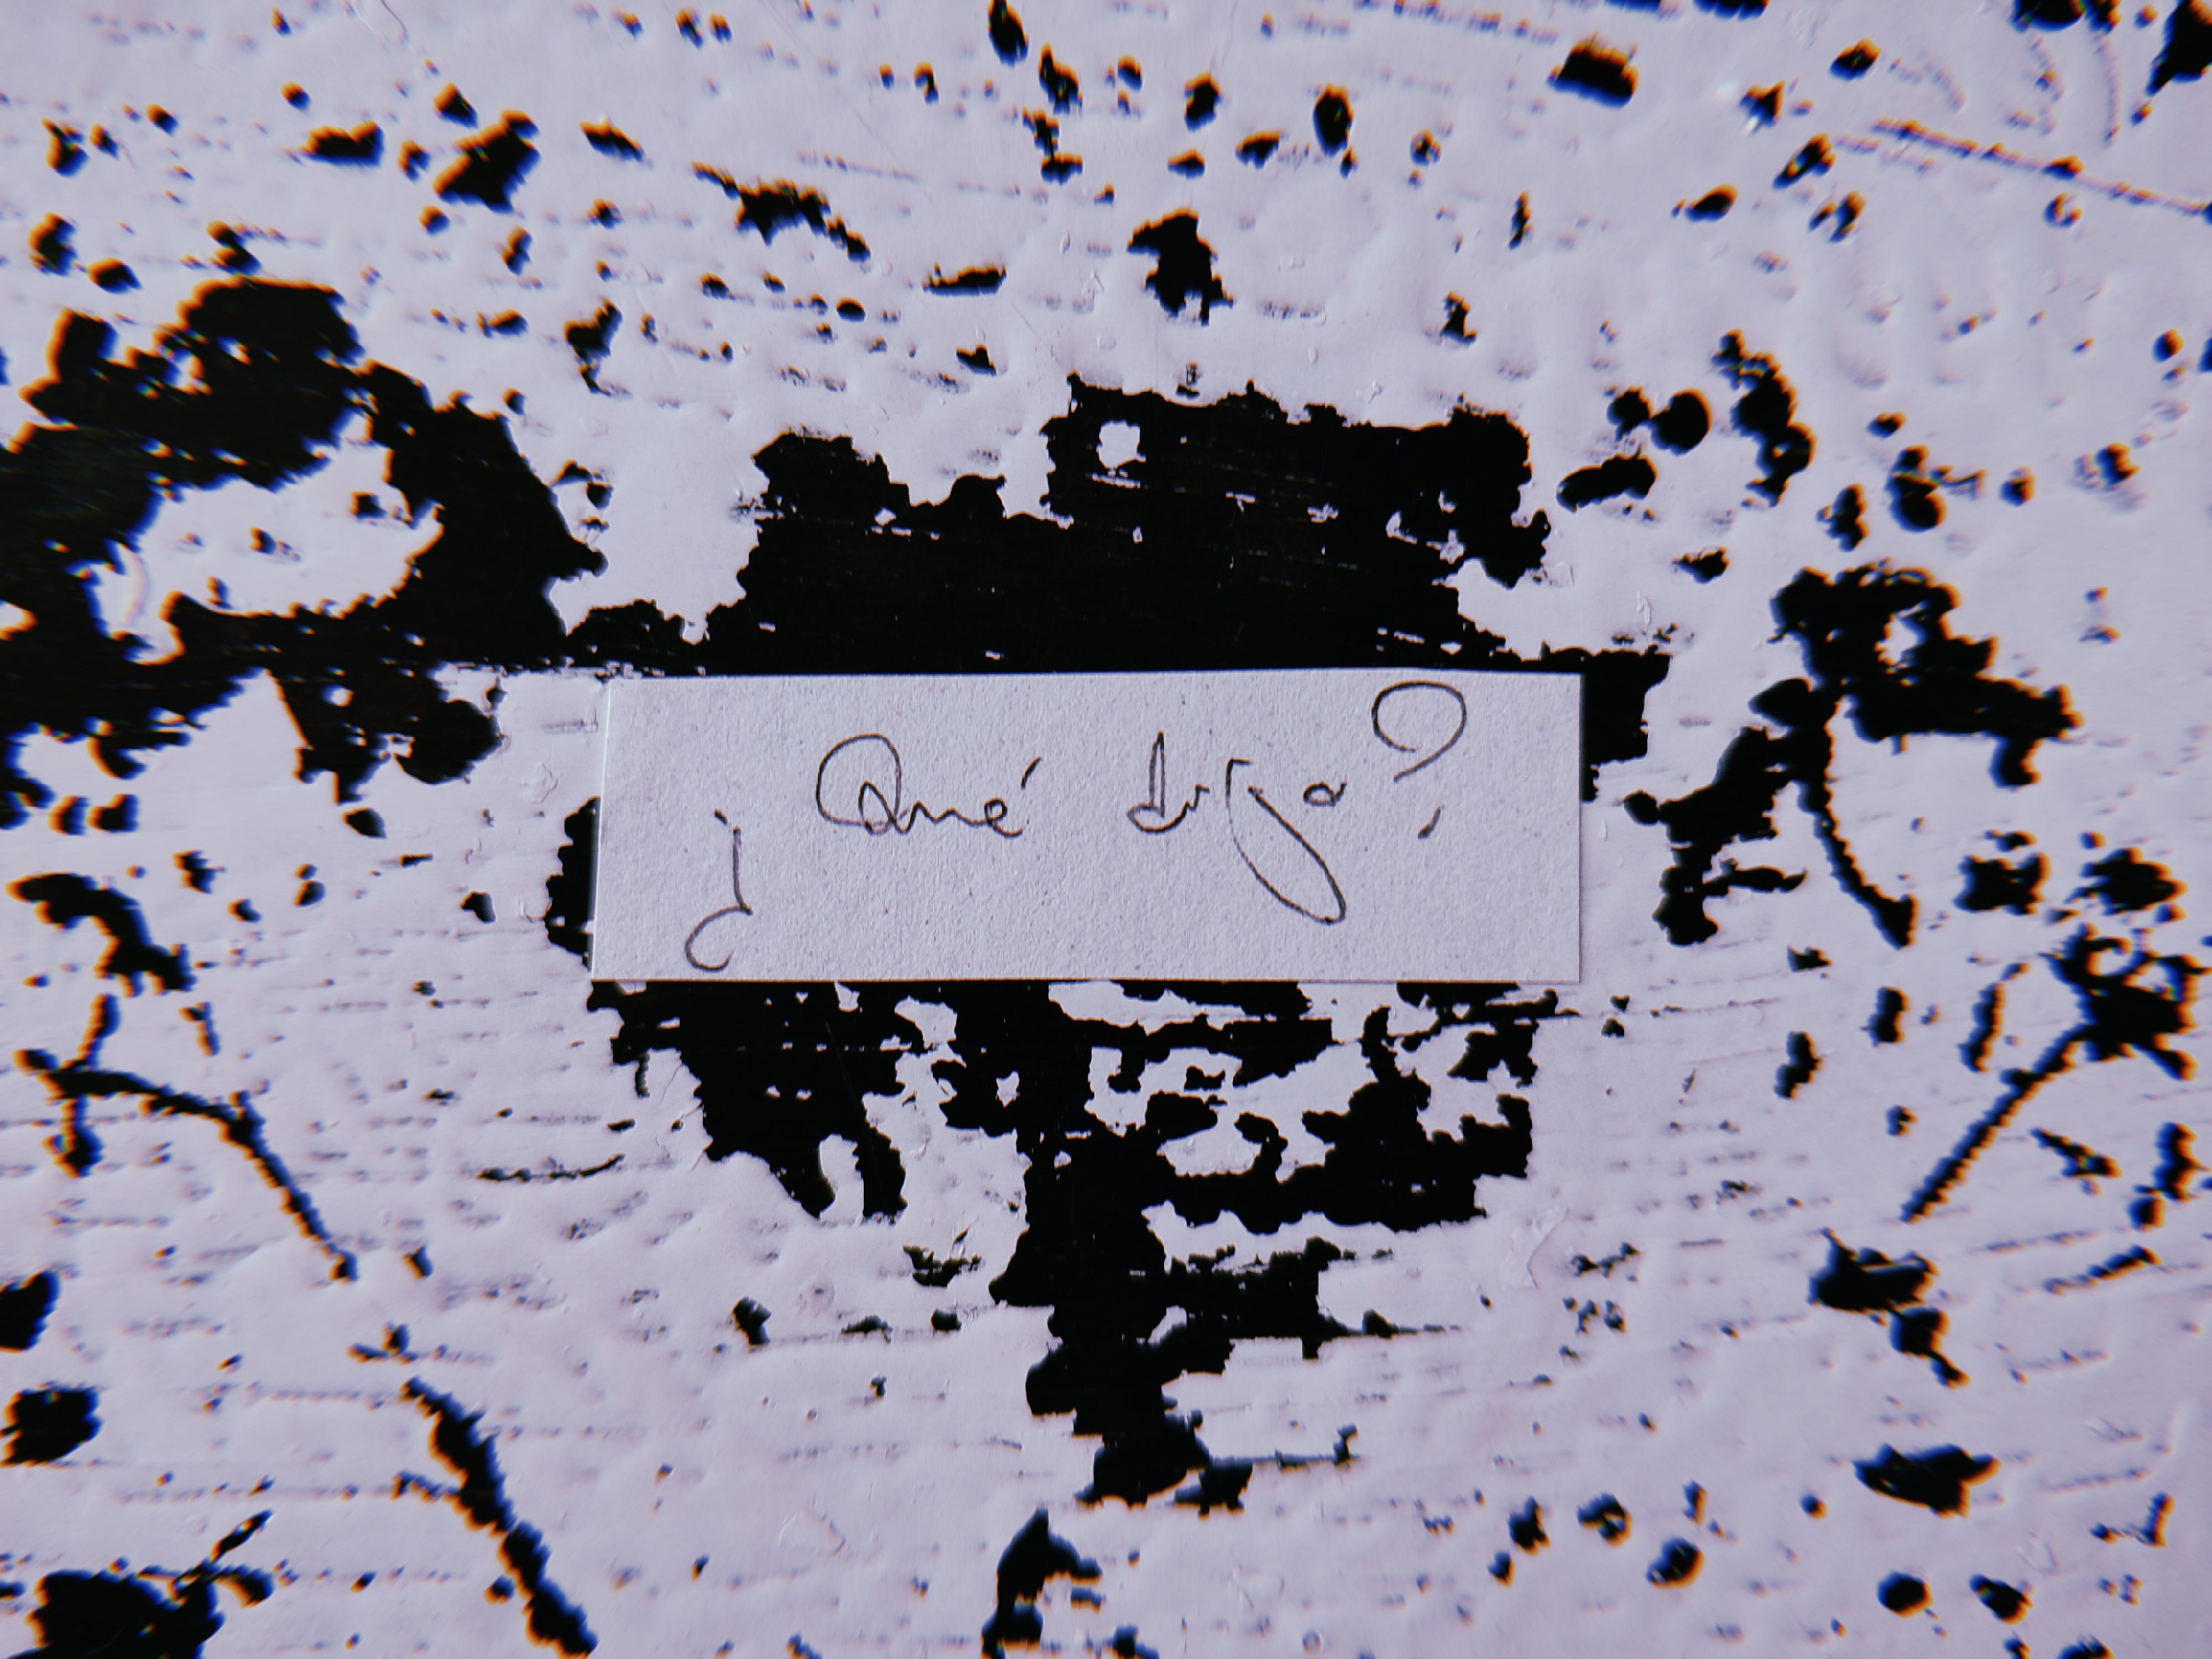 ¿Qué diga?